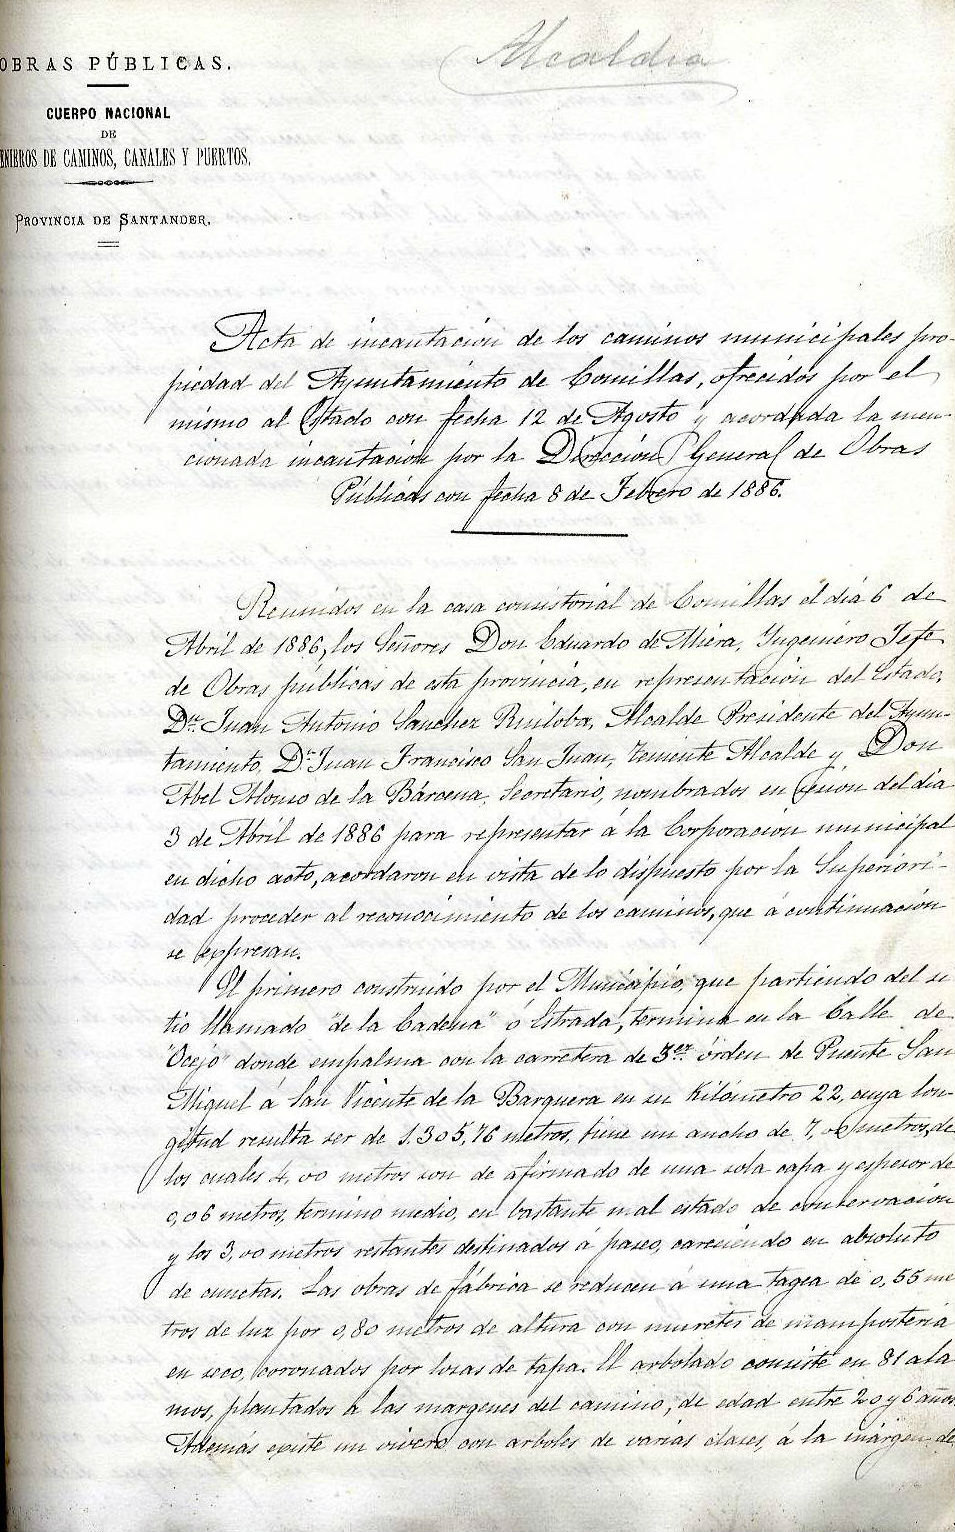 Alcaldia
OBRAS PÚBLICAS.
CUERPO NACIONAL
DE
ENIEROS DE CAMINOS, CANALES Y PUERTOS.
PROVINCIA DE SANTANDER.
Acta de incautación de los caminos municipales pro-
piedad del Ayuntamiento de Comillas, ofrecidos por el
mismo al Estado con fecha 12 de Agosto y acordada la men-
cionada incautación por la Dirección General de Obras
Públicas con fecha 8 de Febrero de 1886.
Reunidos en la casa consistorial de Comillas el día 6 de
Abril de 1886, los Señores Don Eduardo de Miera, Ingeniero Jefe
de Obras públicas de esta provincia, en representación del Estado,
Dn. Juan Antonio Sanchez Ruiloba, Alcalde Presidente del Ayun-
tamiento, Dn. Juan Francisco San Juan, Teniente Alcalde y Don
Abel Alonso de la Bárcena, Secretario, nombrados en sesion del día
3 de Abril de 1886 para representar á la Corporación municipal
en dicho acto, acordaron en vista de lo dispuesto por la Superiori-
dad proceder al reconocimiento de los caminos, que á continuación
se expresan.
El primero construido por el Municipio, que partiendo del si
tio llamado "de la Cadena" o Estrada, termina en la Calle de
"Ocejo" donde empalma con la carretera de 3er. órden de Puente San
Miguel á San Vicente de la Barquera en su Kilómetro 22, cuya lon-
gitud resulta ser de 1.305,76 metros, tiene un ancho de 7,00 metros, de
los cuales 4,00 metros son de afirmado de una sola capa y espesor de
0,06 metros, termino medio, en bastante mal estado de conservación
y los 3,00 metros restantes destinados á paseo, careciendo en absoluto
de cunetas. Las obras de fábrica se reducen á una tagea de 0,55 me
tros de luz por 0,80 metros de altura con muretes de mampostería
en seco, coronados por losas de tapa. El arbolado consiste en 81 ala
mos, plantados á las margenes del camino, de edad entre 20 y 6 años.
Además existe un vivero con arboles de varias clases, á la márgen de